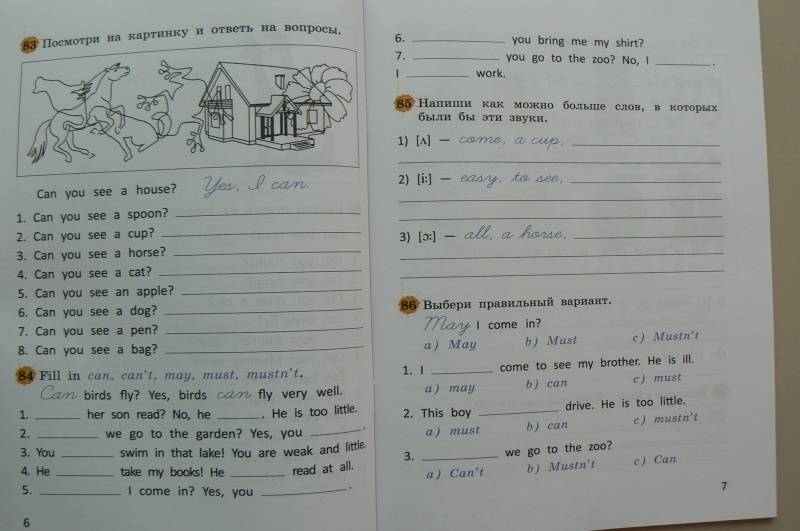 83 Посмотри на картинку и ответь на вопросы.
Can you see a house? Yes, I can.
1. Can you see a spoon? ____
2. Can you see a cup? ____
3. Can you see a horse? ____
4. Can you see a cat? ____
5. Can you see an apple? ____
6. Can you see a dog? ____
7. Can you see a pen? ____
8. Can you see a bag? ____
84 Fill in can, can't, may, must, mustn't.
Can birds fly? Yes, birds can fly very well.
1. ____ her son read? No, he ____. He is too little.
2. ____ we go to the garden? Yes, you ____.
3. You ____ swim in that lake! You are weak and little.
4. He ____ take my books! He ____ read at all.
5. ____ I come in? Yes, you ____.
6
6. ____ you bring me my shirt?
7. ____ you go to the zoo? No, I ____.
I ____ work.
85 Напиши как можно больше слов, в которых
были бы эти звуки.
1) [ʌ] — come, a cup, ____
2) [i:] — easy, to see, ____
3) [ɔ:] — all, a horse, ____
86 Выбери правильный вариант.
May I come in?
a) May b) Must c) Mustn't
1. I ____ come to see my brother. He is ill.
a) may b) can c) must
2. This boy ____ drive. He is too little.
a) must b) can c) mustn't
3. ____ we go to the zoo?
a) Can't b) Mustn't c) Can
7